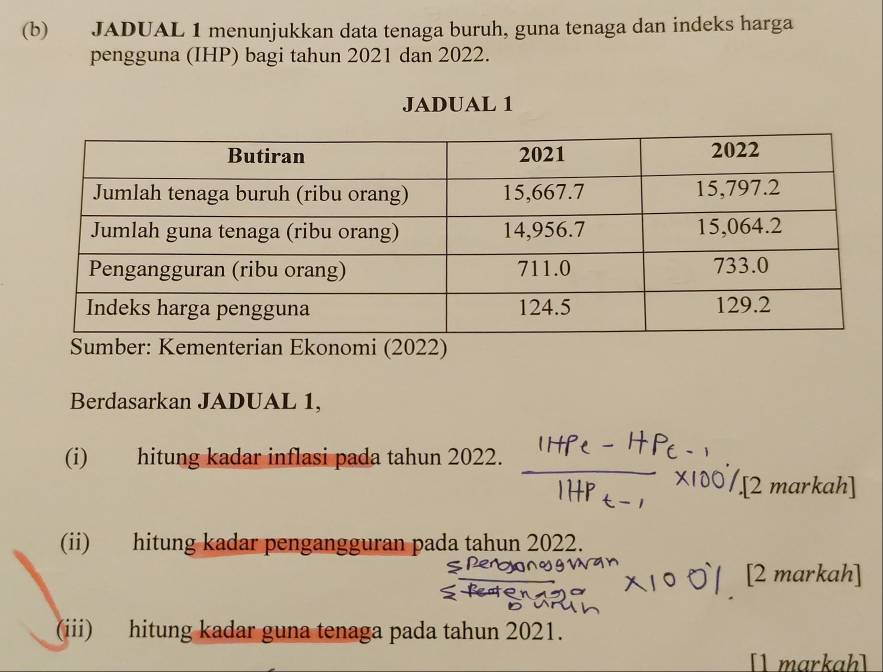 (b) JADUAL 1 menunjukkan data tenaga buruh, guna tenaga dan indeks harga
pengguna (IHP) bagi tahun 2021 dan 2022.
JADUAL 1
Butiran 2021 2022
Jumlah tenaga buruh (ribu orang) 15,667.7 15,797.2
Jumlah guna tenaga (ribu orang) 14,956.7 15,064.2
Pengangguran (ribu orang) 711.0 733.0
Indeks harga pengguna 124.5 129.2
Sumber: Kementerian Ekonomi (2022)
Berdasarkan JADUAL 1,
(i) hitung kadar inflasi pada tahun 2022.
IHPt - HPt-1
IHPt-1 x100% [2 markah]
(ii) hitung kadar pengangguran pada tahun 2022.
x100% [2 markah]
buruh
(iii) hitung kadar guna tenaga pada tahun 2021.
[1 markah]